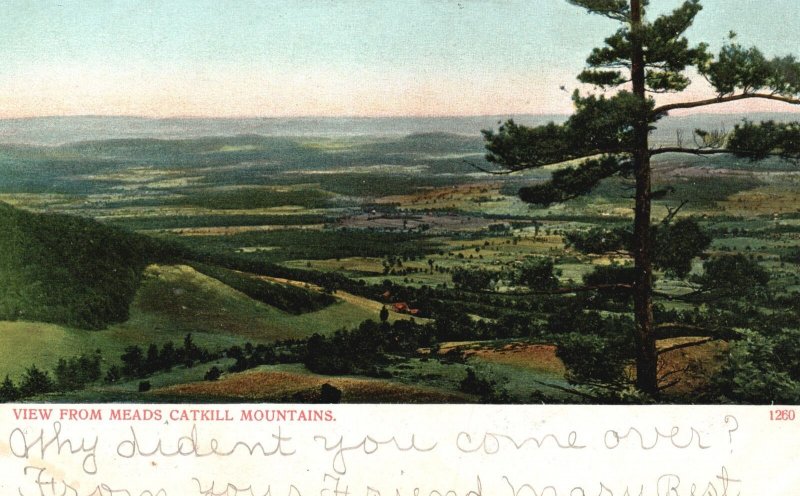 VIEW FROM MEADS CATKILL MOUNTAINS. 1260
Why dident you come over?
From your Friend Mary Rest